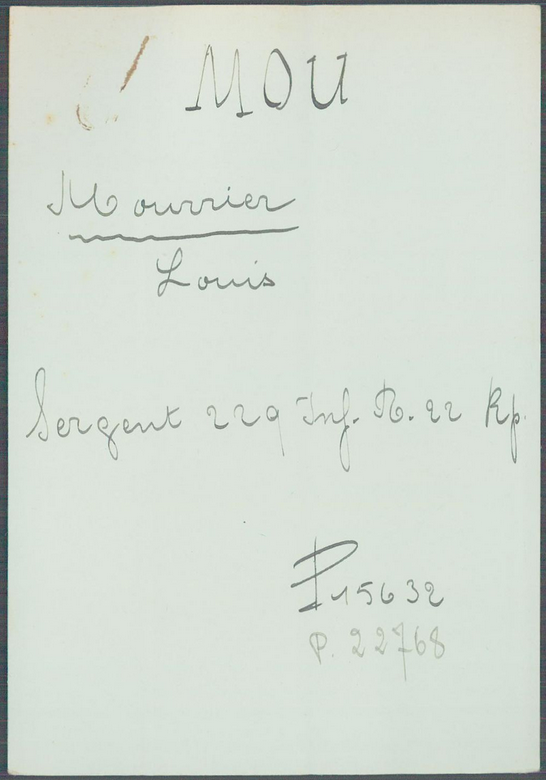 MOU
Mourrier
Louis
Sergent 229 Inf. R. 22 Kp.
P 15632
P. 22768